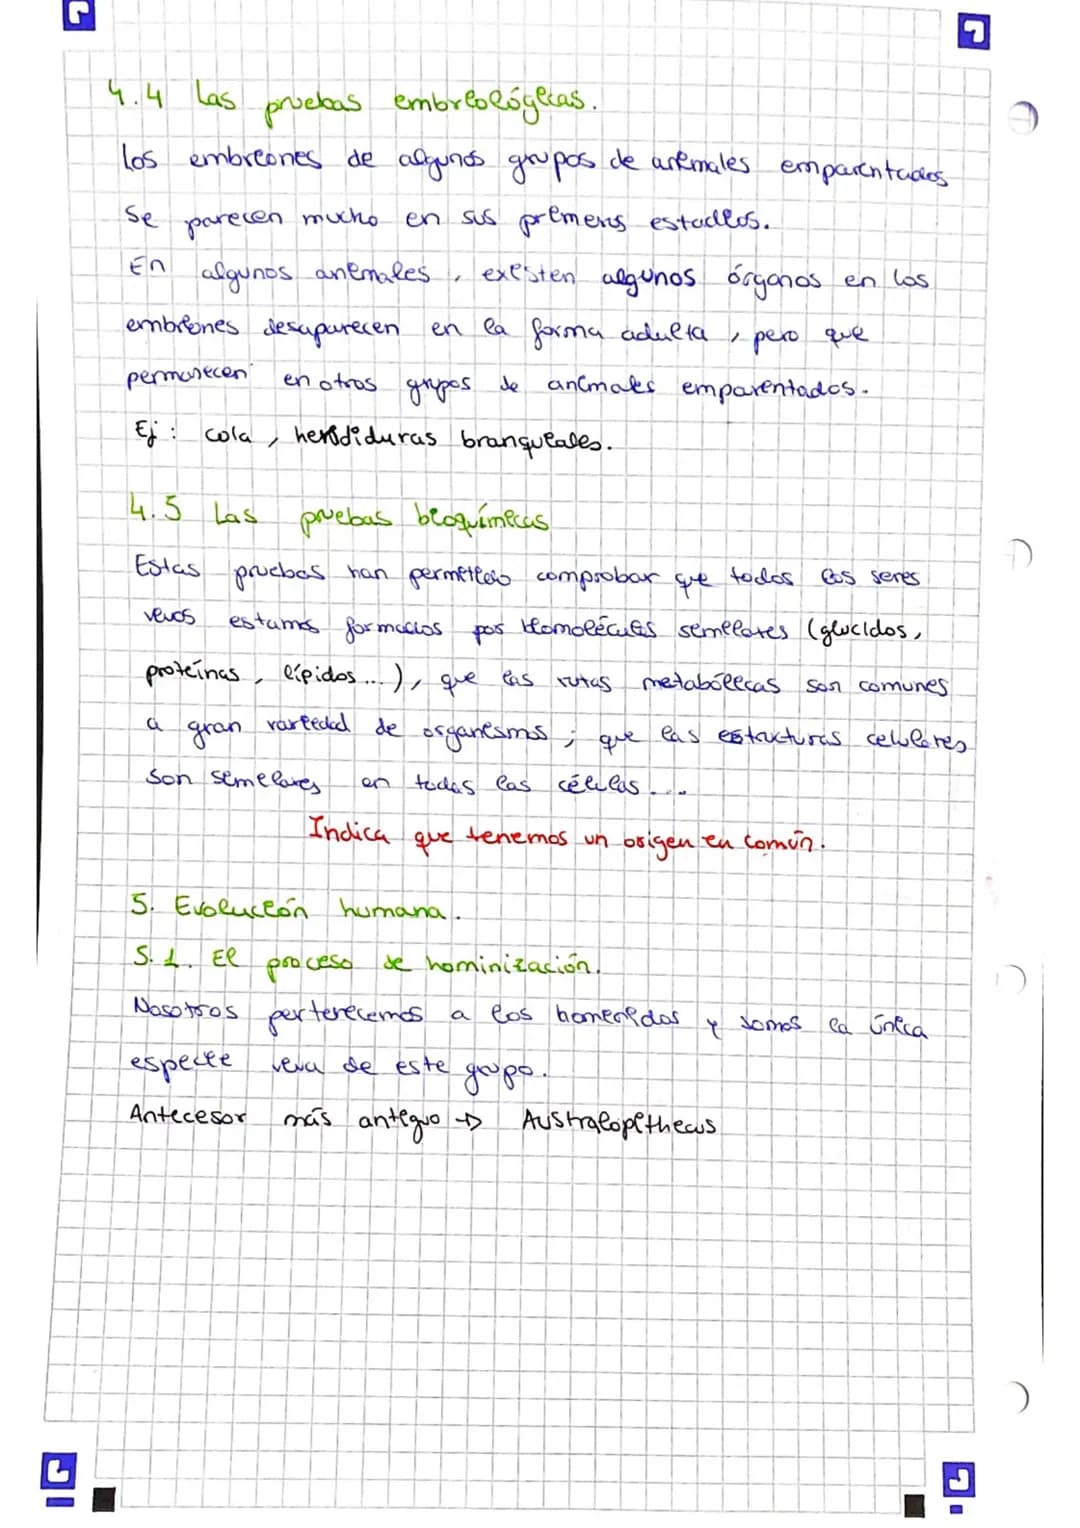 4.4 Las pruebas embriológicas.
Los embriones de algunos grupos de animales emparentados
se parecen mucho en sus primeros estadios.
En algunos animales, existen algunos órganos en los
embriones desaparecen en la forma adulta, pero que
permanecen en otros grupos de animales emparentados.
Ej: cola, hendiduras branquiales.
4.5 Las pruebas bioquímicas
Estas pruebas han permitido comprobar que todos los seres
vivos estamos formados por biomoléculas similares (glúcidos,
proteínas, lípidos...), que las rutas metabólicas son comunes
a gran variedad de organismos; que las estructuras celulares
son similares en todas las células...
Indica que tenemos un origen en común.
5. Evolución humana.
5.1. El proceso de hominización.
Nosotros pertenecemos a los homínidos y somos la única
especie viva de este grupo.
Antecesor más antiguo → Australopithecus